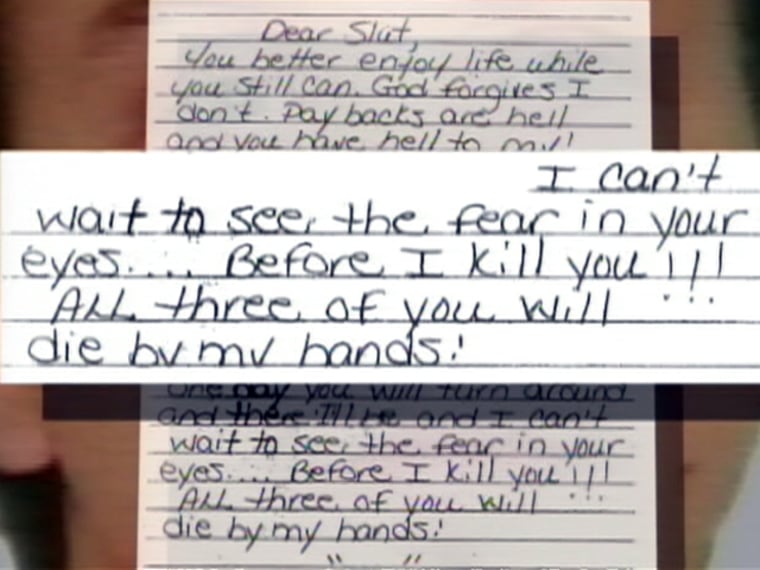 Dear Slut,
You better enjoy life while
you still can. God forgives I
don't. Pay backs are hell
and you have hell to pay!
I can't
wait to see the fear in your
eyes.... Before I kill you!!!
ALL three of you will
die by my hands!
One day you will turn around
and there I'll be and I can't
wait to see the fear in your
eyes.... Before I kill you!!!
ALL three of you will
die by my hands!